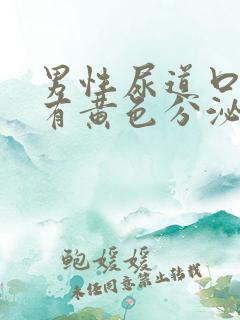 男性尿道口
有黄色分泌
鲍媛媛
未经同意禁止转载